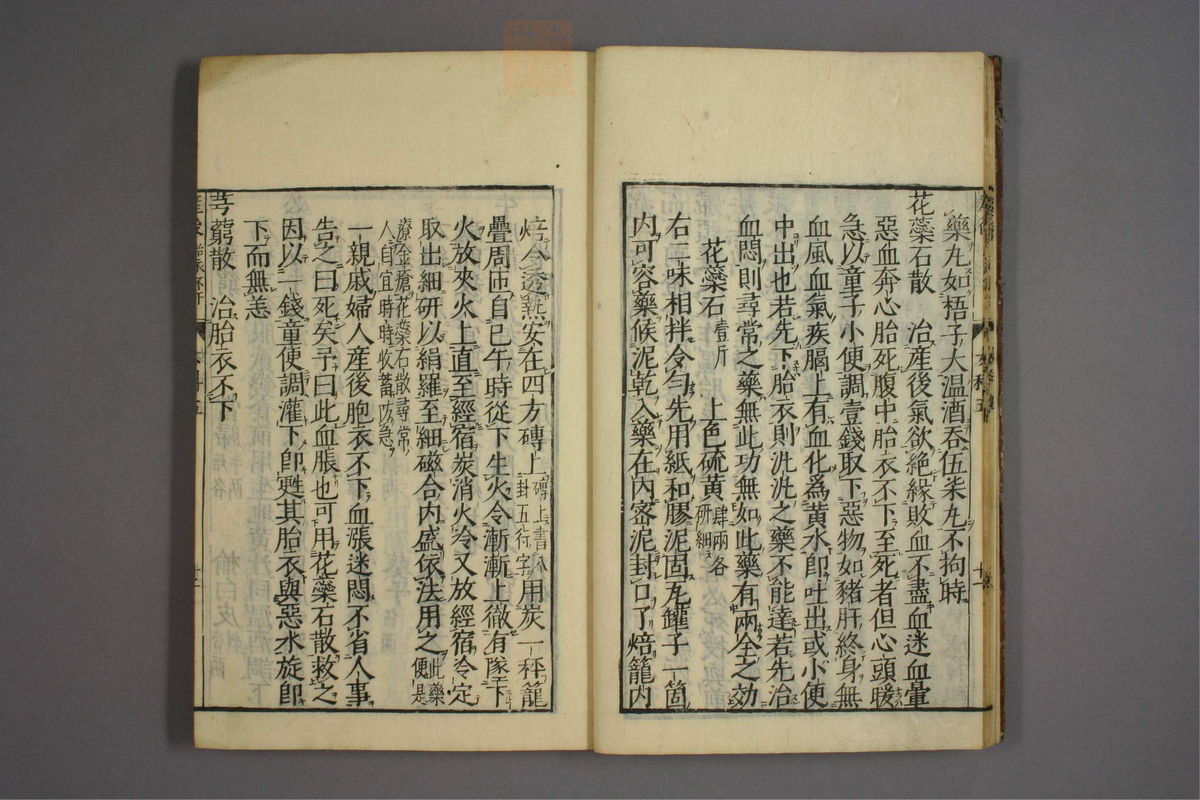 藥丸如梧子大温酒吞伍柒丸不拘時
花蘂石散 治產後氣欲絶緣敗血不盡血迷血暈
惡血奔心胎死腹中胎衣不下至死者但心頭暖
急以童子小便調壹錢取下惡物如豬肝終身無
血風血氣疾膈上有血化爲黃水卽吐出或小便
中出也若先下胎衣則洗洗之藥不能達若先治
血悶則尋常之藥無此功無如此藥有兩全之効
花蘂石壹斤 上色硫黃肆兩各研細
右二味相拌令勻先用紙和膠泥固瓦鑵子一箇
内可容藥候泥乾入藥在内宻泥封口了焙籠内
焙令透熱安在四方磚上磚上書八卦五行字用炭一秤籠
疊周匝自巳午時從下生火令漸漸上徹有墜下
火放夾火上直至經宿炭消火冷又放經宿冷定
取出細研以絹羅至細磁合内盛依法用之此藥便是
療金瘡花蘂石散尋常人自宜時時收蓄防急
一親戚婦人產後胞衣不下血漲迷悶不省人事
告之曰死矣予曰此血脹也可用花蘂石散救之
因以一錢童便調灌下卽甦其胎衣與惡水旋卽
下而無恙
芎藭散 治胎衣不下